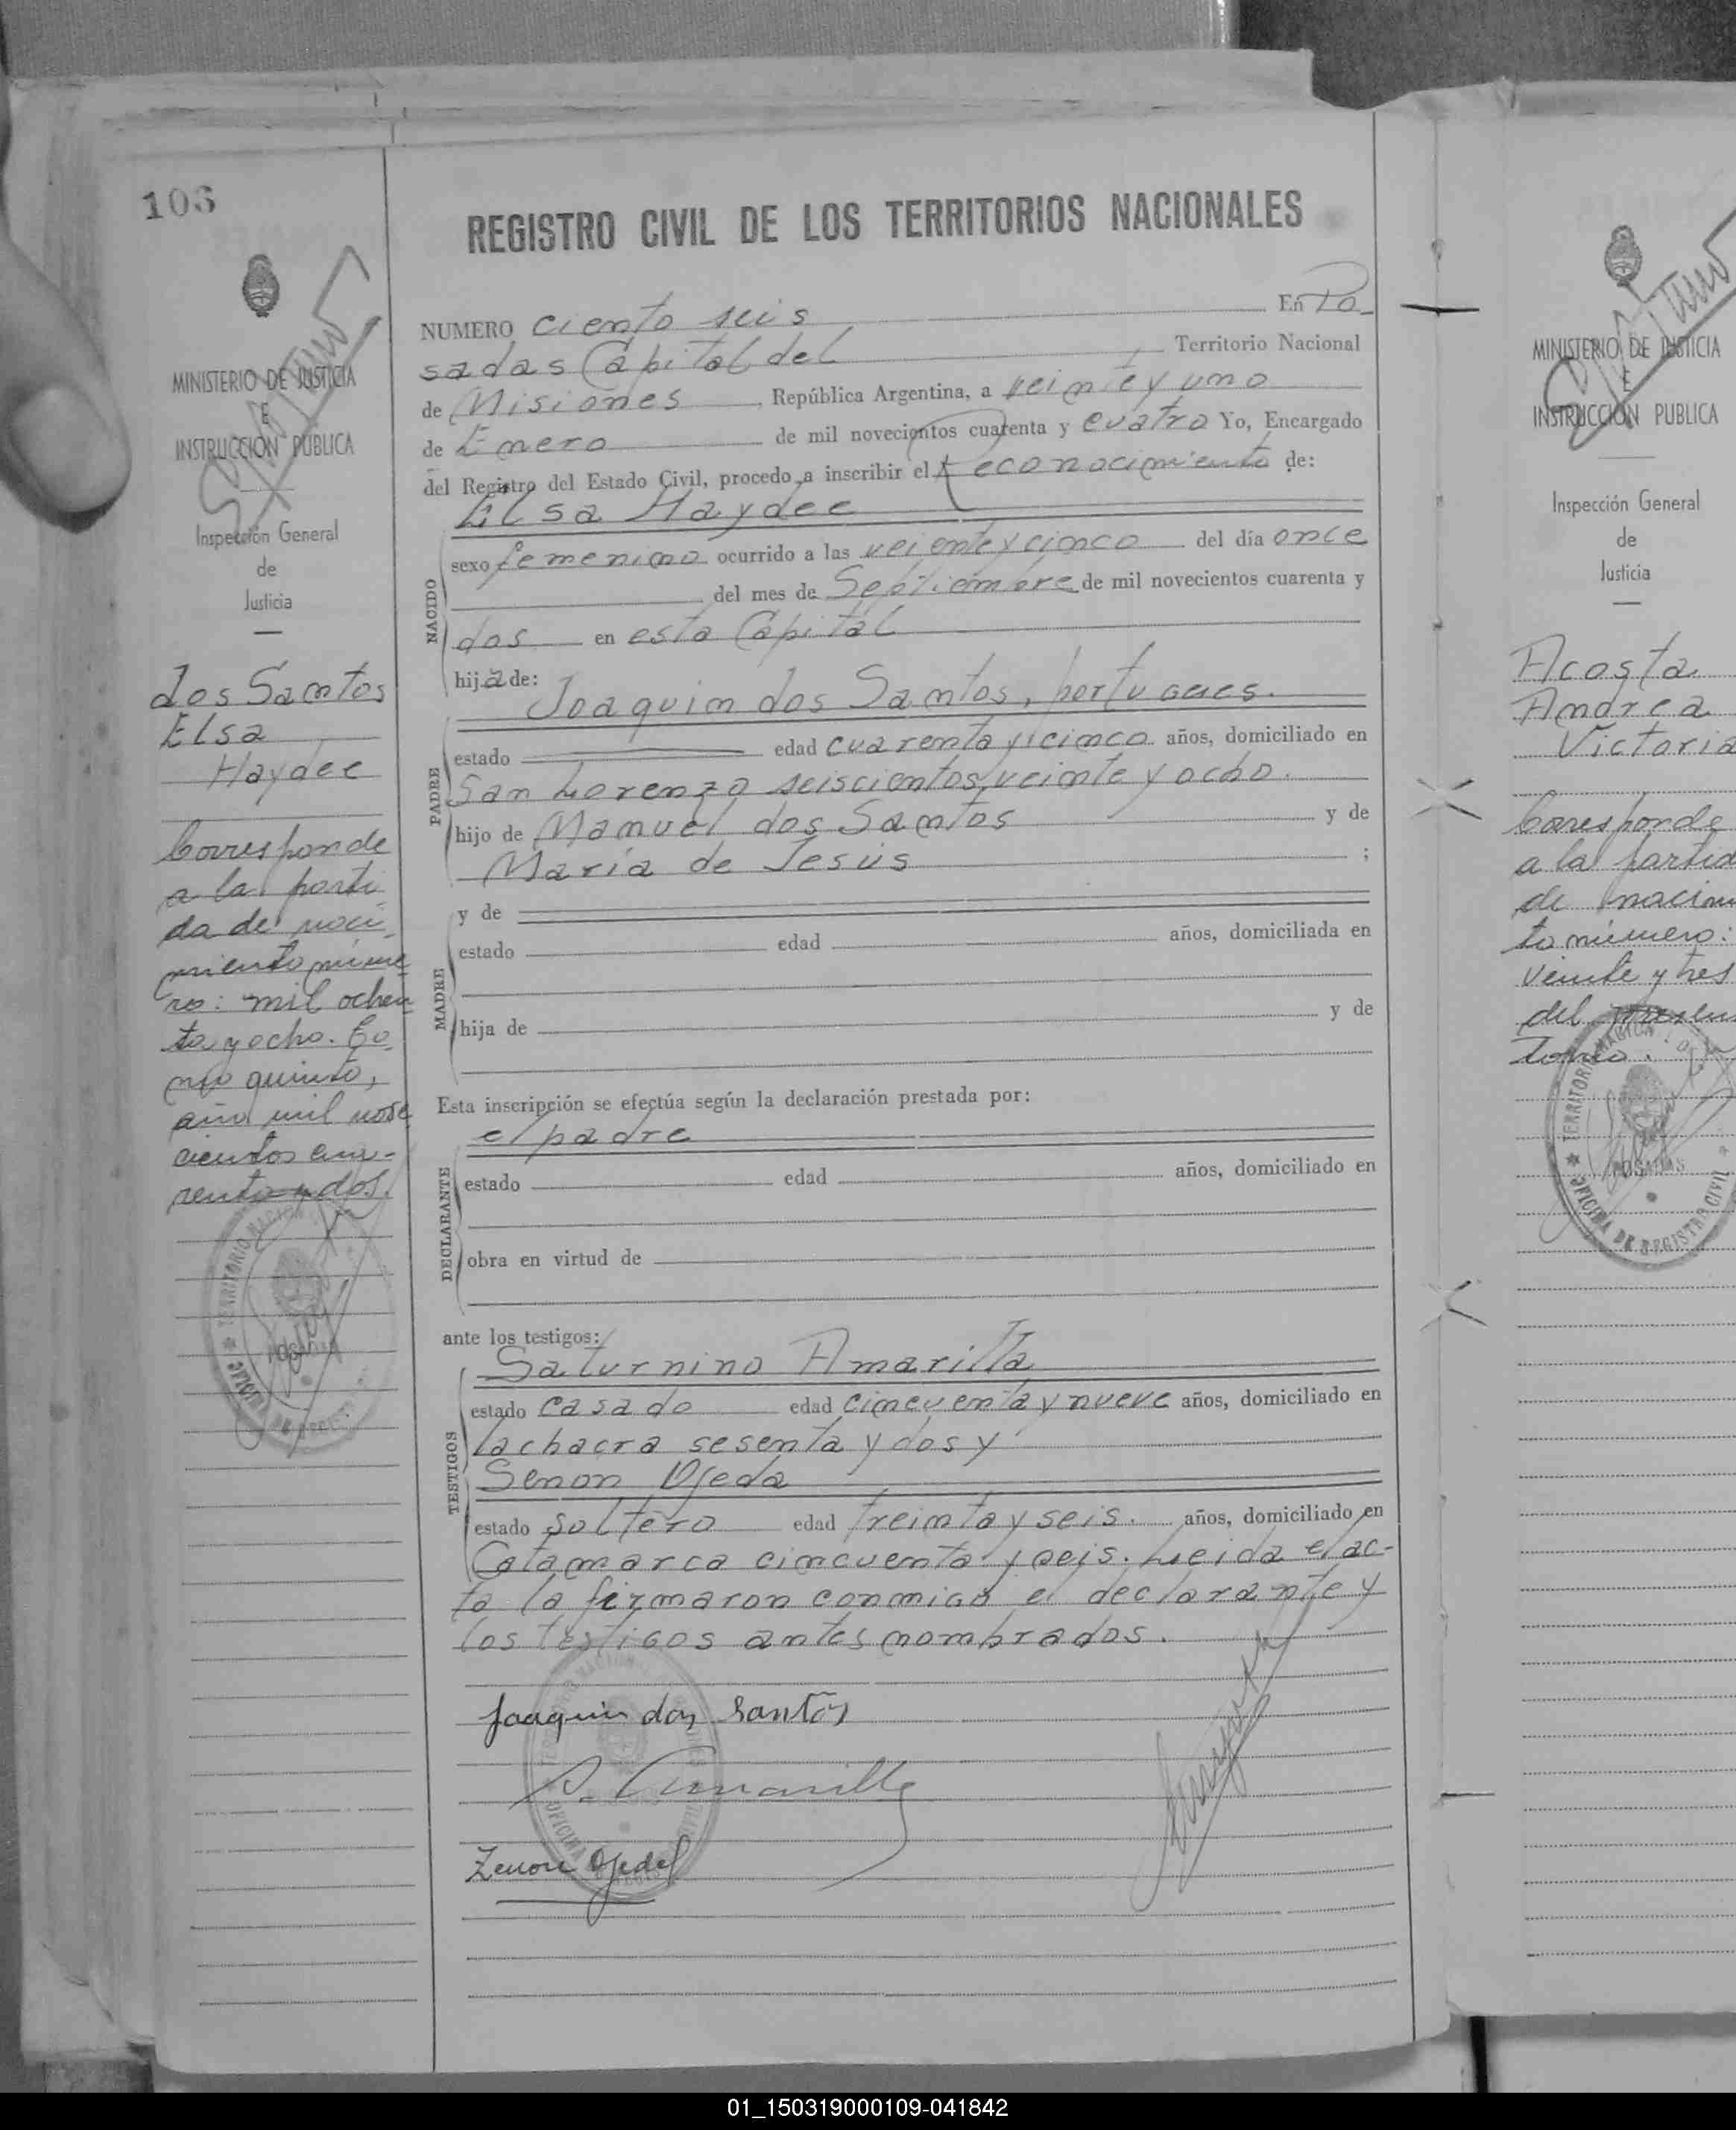 106
MINISTERIO DE JUSTICIA
E
INSTRUCCIÓN PUBLICA
Inspección General
de
Justicia
dos Santos
Elsa
Haydee
Corresponde
a la parti
da de naci
miento núme
ro: mil ochen
ta y ocho. To
mo quinto,
año mil nove
cientos cua-
renta y dos.
REGISTRO CIVIL DE LOS TERRITORIOS NACIONALES
NUMERO ciento seis En Po-
sadas Capital del Territorio Nacional
de Misiones, República Argentina, a veinte y uno
de Enero de mil novecientos cuarenta y cuatro Yo, Encargado
del Registro del Estado Civil, procedo a inscribir el Reconocimiento de:
Elsa Haydee
NACIDO
sexo femenino ocurrido a las veiente y cinco del día once
del mes de Septiembre de mil novecientos cuarenta y
dos en esta Capital
hija de:
Joaquim dos Santos, portugues.
PADRE
estado edad cuarenta y cinco años, domiciliado en
San Lorenzo seiscientos veinte y ocho.
hijo de Manuel dos Santos y de
María de Jesús ;
y de
MADRE
estado edad años, domiciliada en
hija de y de
Esta inscripción se efectúa según la declaración prestada por:
el padre
DECLARANTE
estado edad años, domiciliado en
obra en virtud de
ante los testigos:
Saturnino Amarilla
TESTIGOS
estado casado edad cincuenta y nueve años, domiciliado en
la chacra sesenta y dos y
Senon Ojeda
estado soltero edad treinta y seis. años, domiciliado en
Catamarca cincuenta y seis. Leida el ac-
ta la firmaron conmigo el declarante y
los testigos antes nombrados.
Joaquim dos Santos
S. Amarilla
Zenon Ojeda
MINISTERIO DE JUSTICIA
E
INSTRUCCIÓN PUBLICA
Inspección General
de
Justicia
Acosta
Andrea
Victoria
Corresponde
a la partid
de nacim
to número:
veinte y tres
del presen
tomo.
TERRITORIO NACIONAL
POSADAS
OFICINA DE REGISTRO CIVIL
01_150319000109-041842